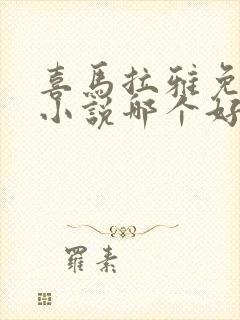 喜馬拉雅免
小說哪个好
羅素